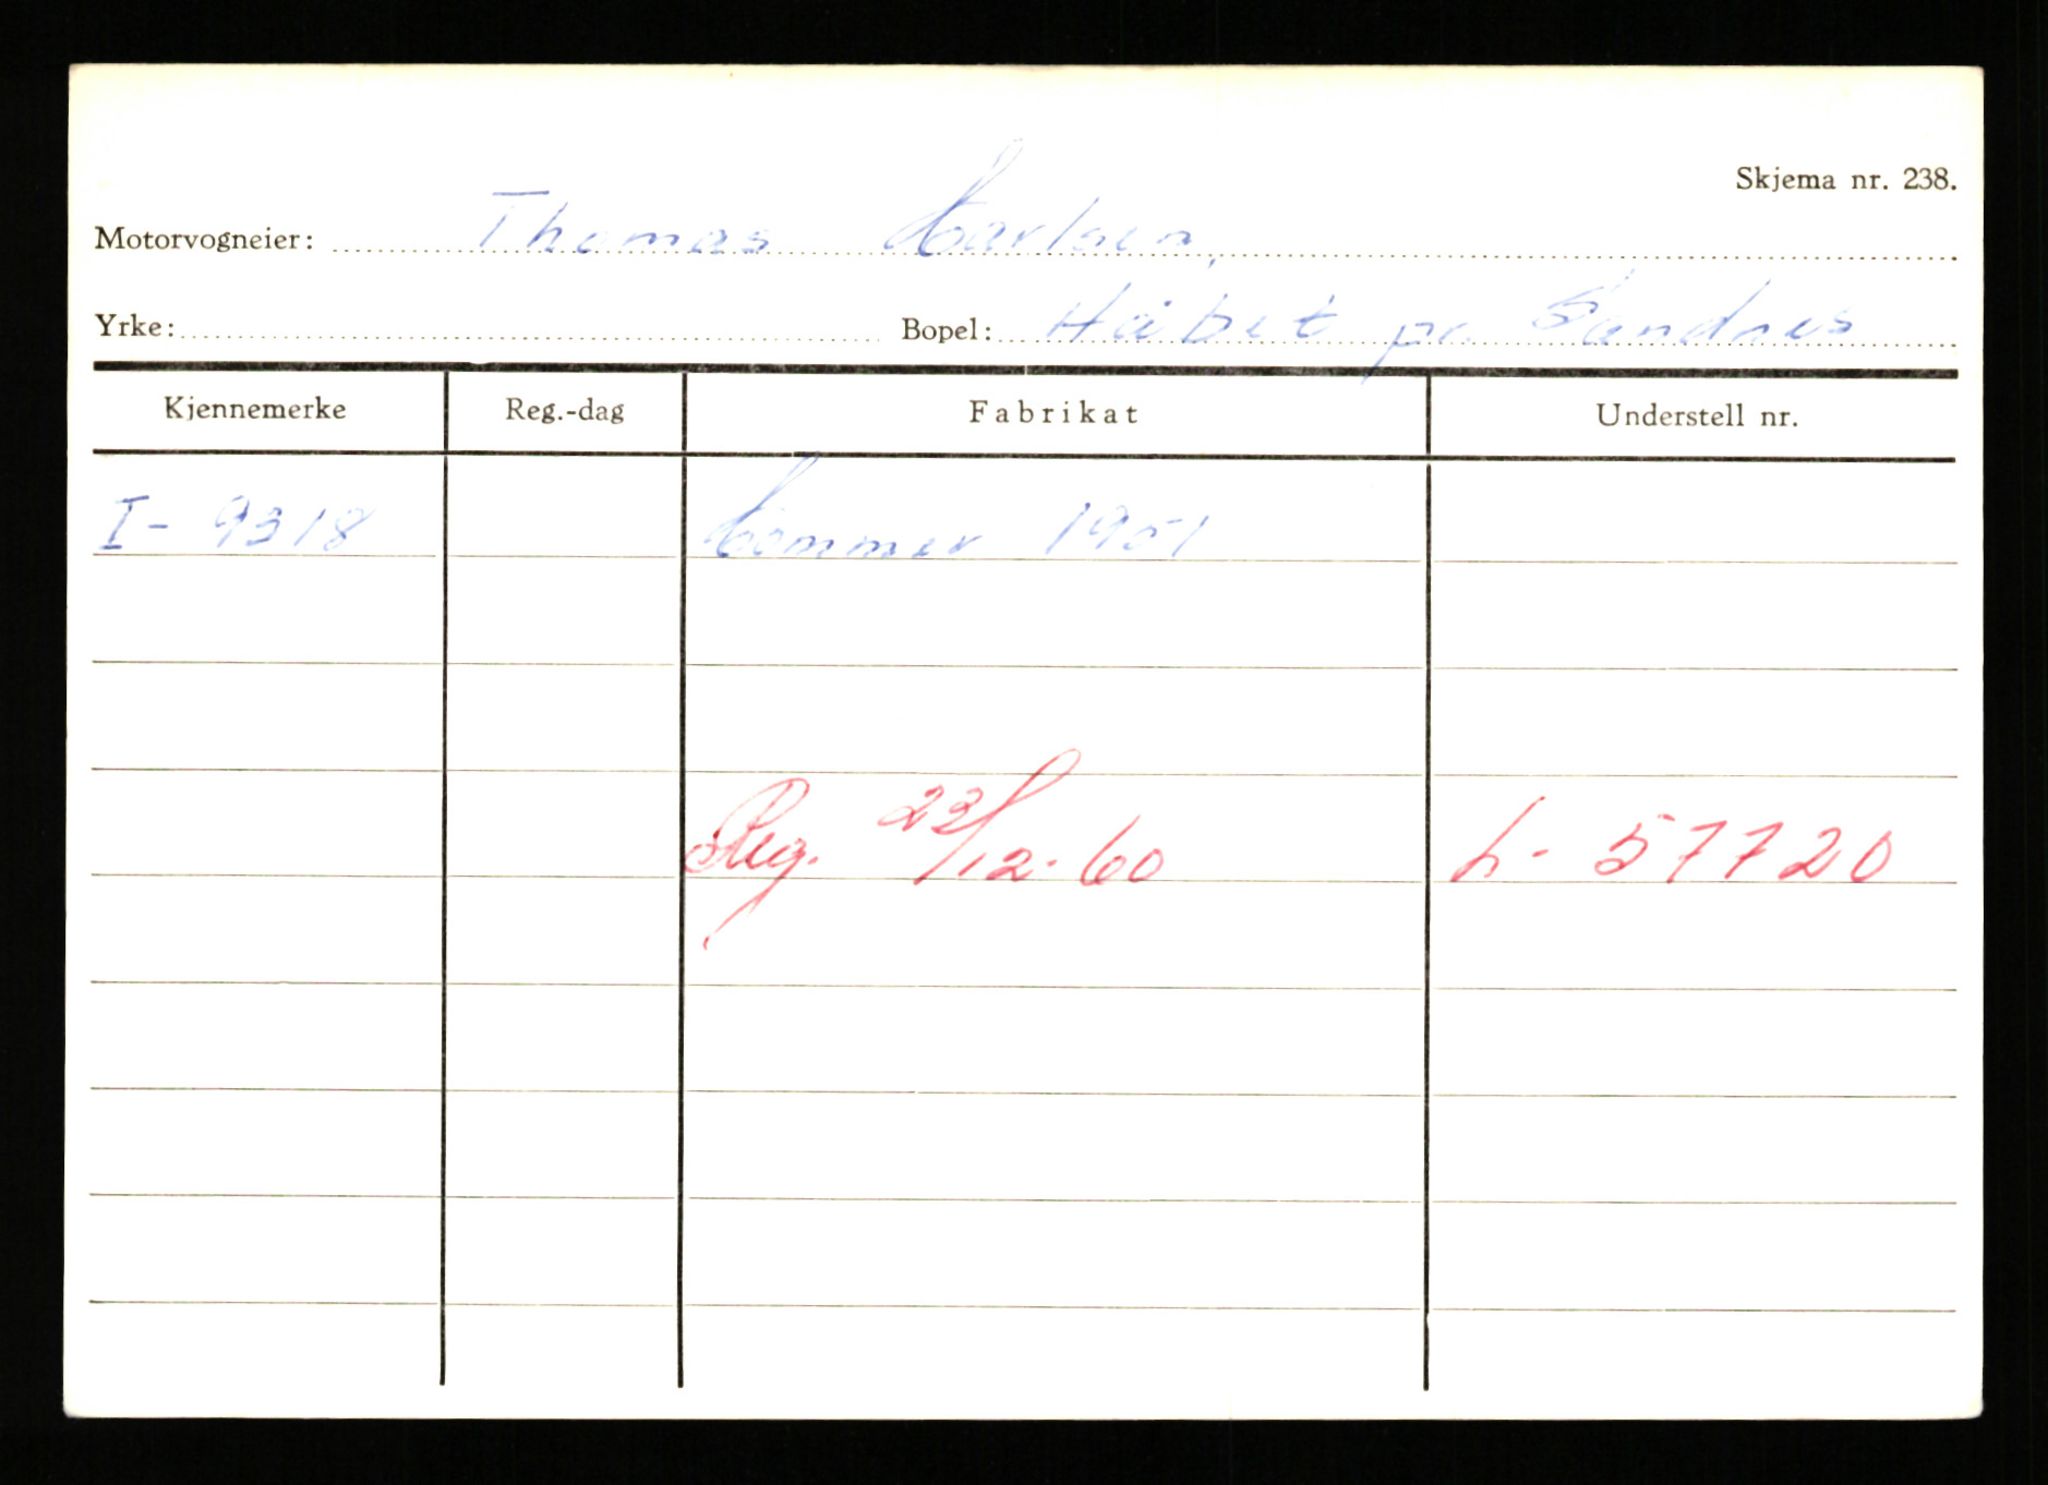 Skjema nr. 238.
Motorvogneier: Thomas Carlsen
Yrke: Bopel: Håbet pr. Sandnes
Kjennemerke Reg.-dag Fabrikat Understell nr.
I - 9318 Commer 1951
Reg. 23/12-60 L - 57720